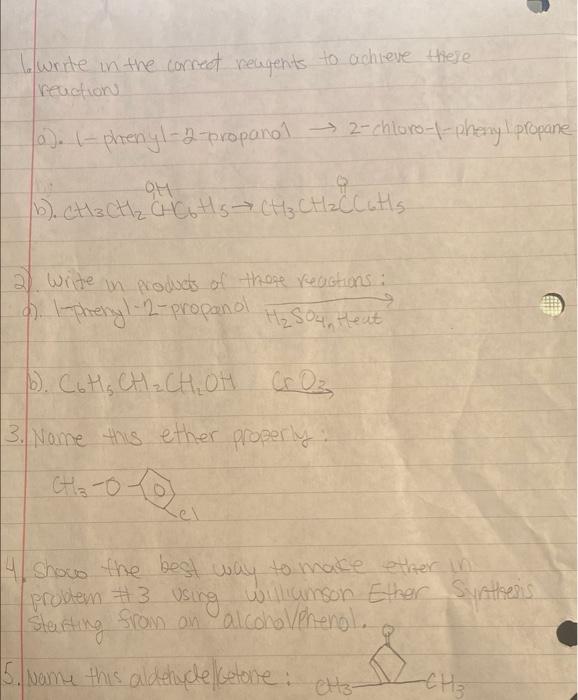 1. write in the correct reagents to achieve these
reactions
a). 1-phenyl-2-propanol → 2-chloro-1-phenylpropane
OH O
b). CH3CH2CHC6H5 → CH3CH2CC6H5
2). Write in products of those reactions:
a). 1-phenyl-2-propanol H2SO4, Heat
b). C6H5CH2CH2OH CrO3
3. Name this ether properly:
CH3-O
Cl
4. Show the best way to make ether in
problem #3 using Williamson Ether Synthesis
Starting from an alcohol/phenol.
O
5. Name this aldehyde/ketone: CH3 CH3